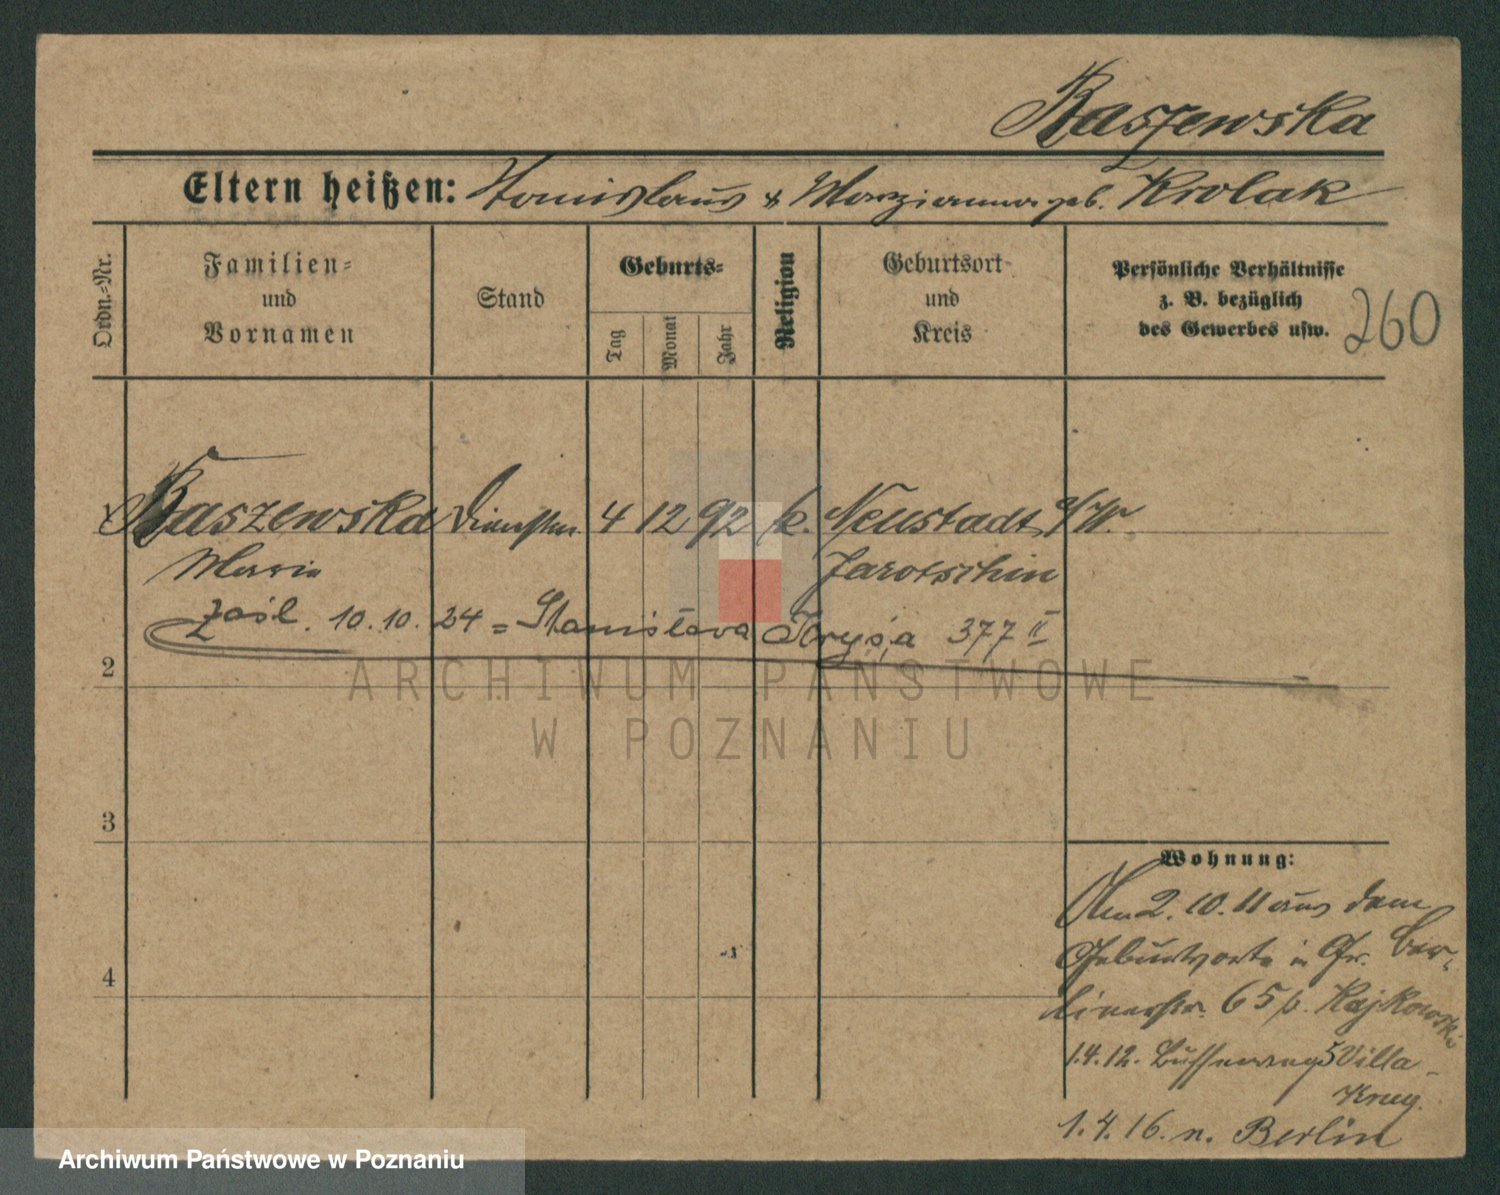 Baszewska
Eltern heißen: Stanislaus & Marzianna geb. Krolak
Ordn.-Nr.
Familien- und Vornamen
Stand
Geburts-
Tag
Monat
Jahr
Religion
Geburtsort und Kreis
Persönliche Verhältnisse
z. B. bezüglich
des Gewerbes usw.
260
1 Baszewska Dienstm. 4 12 92 k. Neustadt a/W.
Maria Jarotschin
zaśl. 10.10.24 = Stanisława Krysa 377 II
2
3
4
Wohnung:
Am 2.10.11 aus dem
Geburtsorte in Gr. Ber-
linerstr. 65 b. Rajkowski
1.4.12. 5 Villa
Krug.
1.4.16. n. Berlin
ARCHIWUM PAŃSTWOWE
W POZNANIU
Archiwum Państwowe w Poznaniu